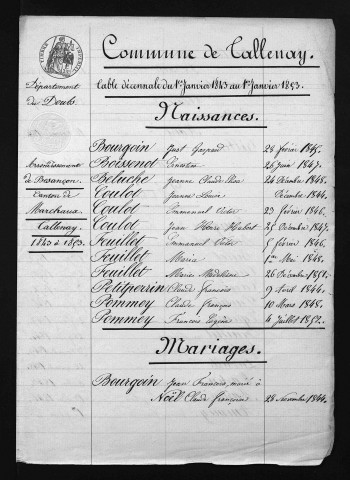 Commune de Tallenay.
Table décennale du 1er Janvier 1843 au 1er Janvier 1853.
Département
du Doubs.
Arrondissement
de Besançon.
Canton de
Marchaux.
Tallenay.
1843 à 1853.
Naissances.
Bourgoin Just Gaspard 28 février 1845.
Boissenot 26 Juin 1847.
Beluche Jeanne Claude 24 Décembre 1848.
Coulot Jeanne Louise Décembre 1844.
Coulot Emmanuel Victor 23 février 1846.
Coulot Jean Henri Hubert 25 Décembre 1847.
Feuillet Emmanuel Victor 5 février 1846.
Feuillet Maria 1er Mai 1848.
Feuillet Marie Madeleine 26 Décembre 1851.
Petitperrin Claude françois 9 Avril 1844.
Pommey Claude françois 10 Mars 1848.
Pommey François Eugène 4 Juillet 1852.
Mariages.
Bourgoin Jean François, marié à
Noël Claude françoise 28 Novembre 1844.